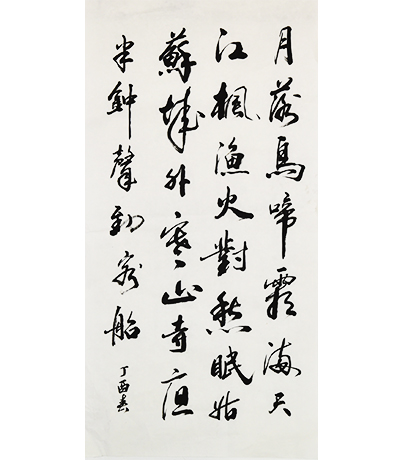 月落烏啼霜滿天
江楓漁火對愁眠姑
蘇城外寒山寺夜
半鐘聲到客船
丁酉春